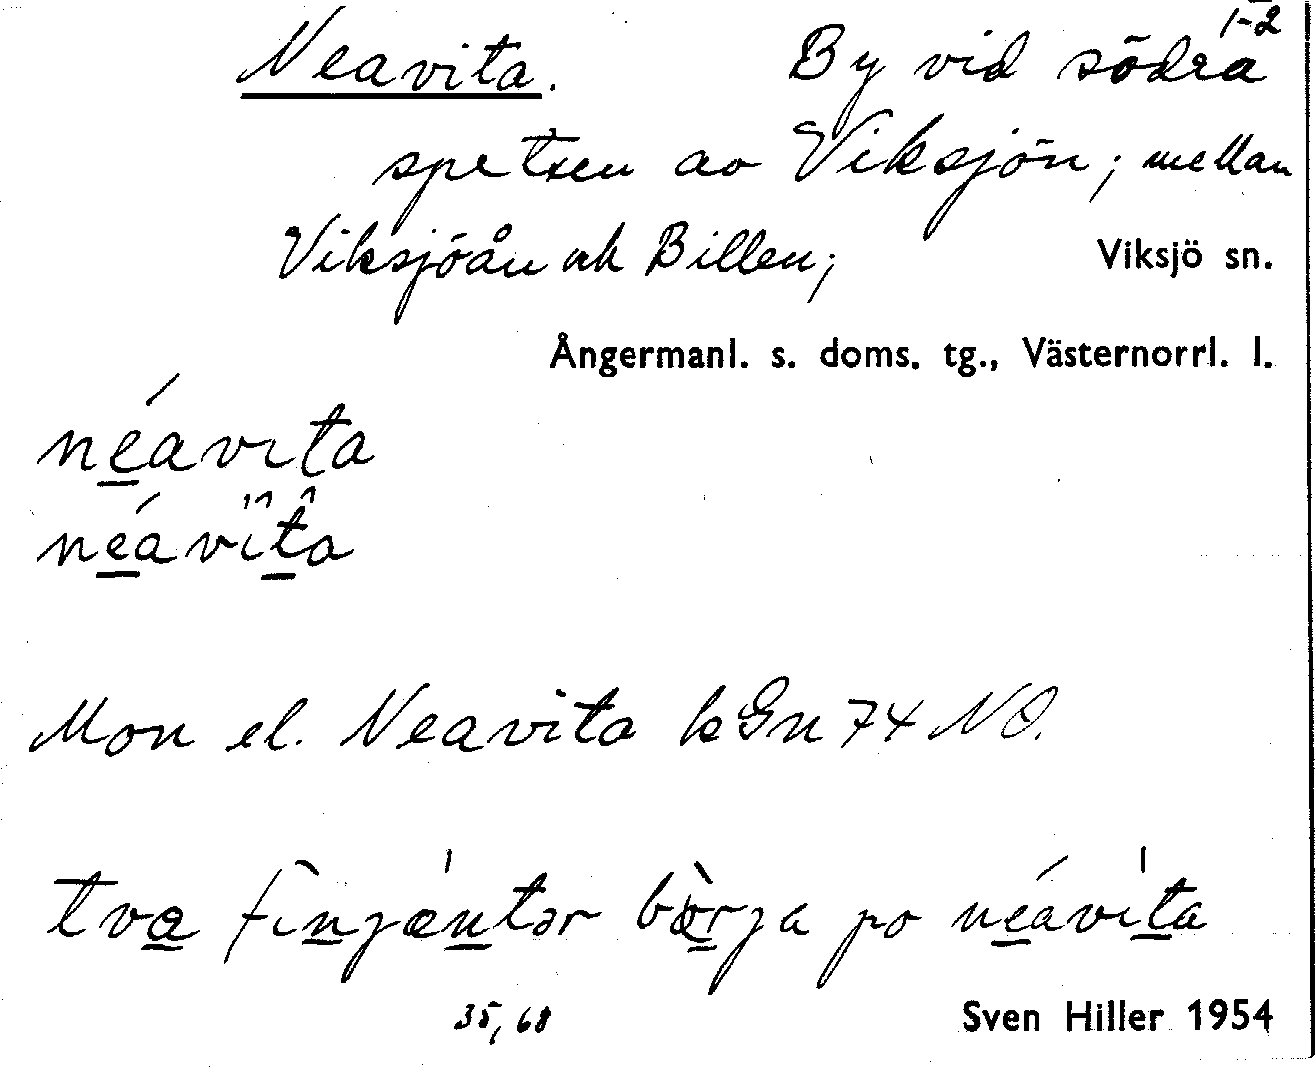 1-2
Neavita. By vid södra
spetsen av Viksjön; mellan
Viksjöån och Billen; Viksjö sn.
Ångermanl. s. doms. tg., Västernorrl. l.
néavita
néavita
Mon el. Neavita kGn 74 NO.
tva finjæntər börja po néavita
35, 68 Sven Hiller 1954